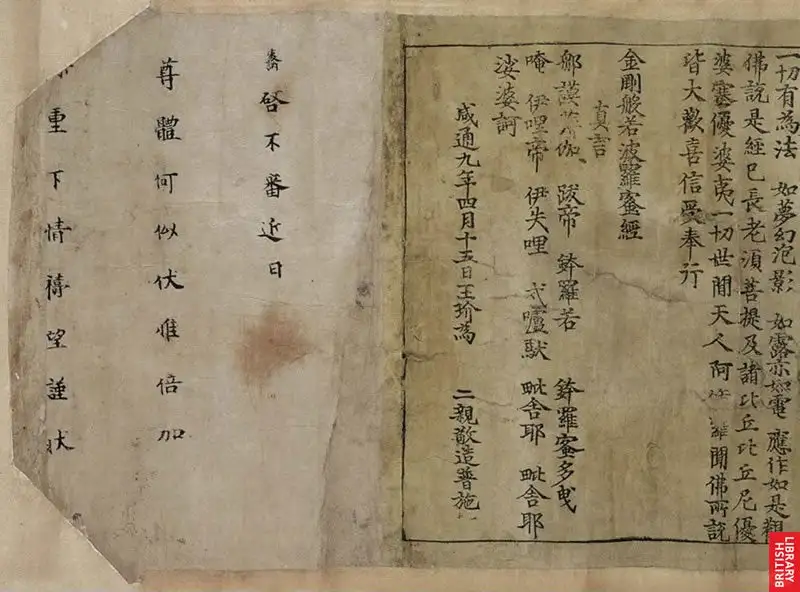 一切有為法 如夢幻泡影 如露亦如電 應作如是觀
佛說是經已長老須菩提及諸比丘比丘尼優
婆塞優婆夷一切世間天人阿 羅聞佛所說
皆大歡喜信受奉行
金剛般若波羅蜜經
真言
郍謨 伽 跋帝 鉢羅若 鉢羅蜜多曳
唵 伊哩帝 伊失哩 戍嚧馱 毗舍耶 毗舍耶
娑婆訶
咸通九年四月十五日王玠為 二親敬造普施
啓不審近日
尊體何似伏惟倍加
重下情禱望謹狀
BRITISH LIBRARY